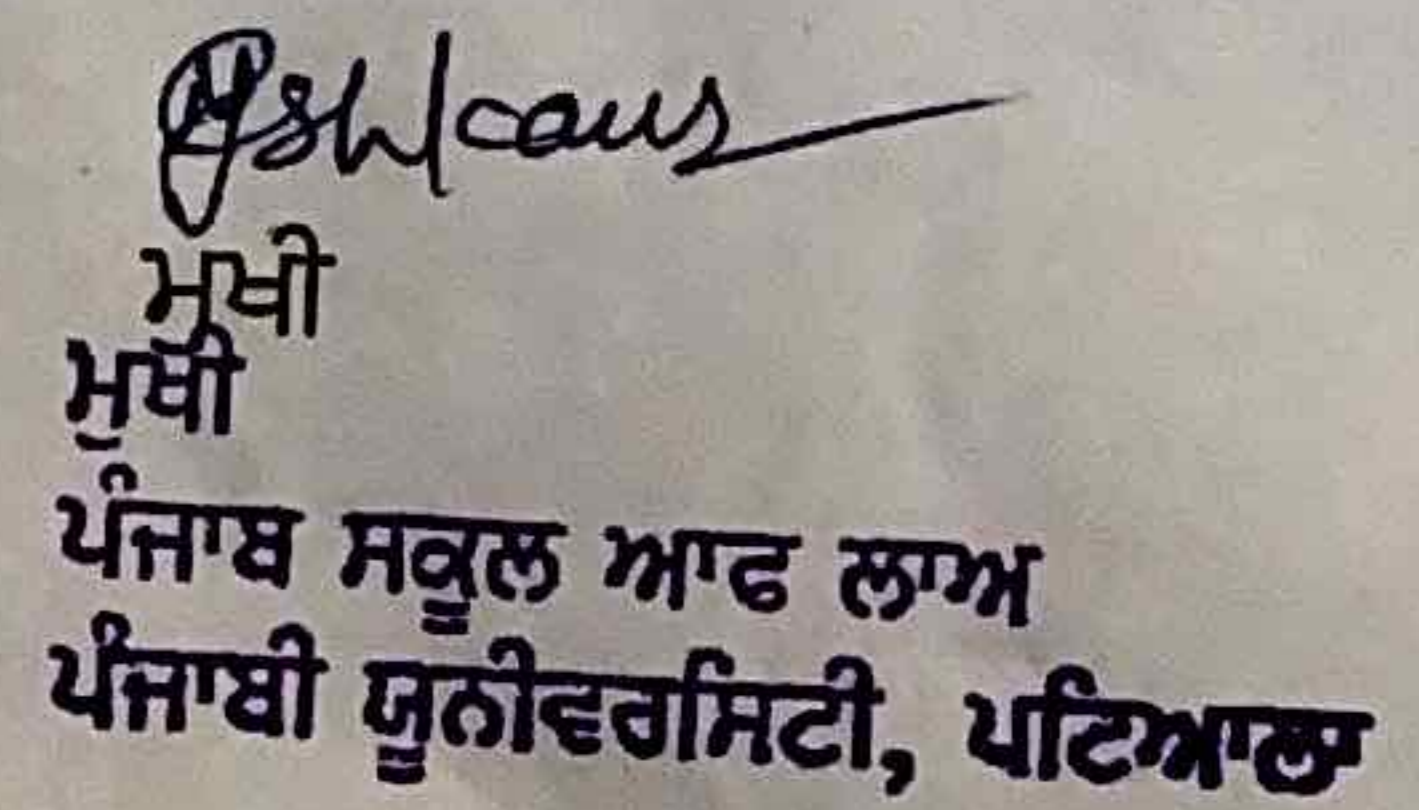 ਮੁਖੀ
ਮੁਖੀ
ਪੰਜਾਬ ਸਕੂਲ ਆਫ ਲਾਅ
ਪੰਜਾਬੀ ਯੂਨੀਵਰਸਿਟੀ, ਪਟਿਆਲਾ